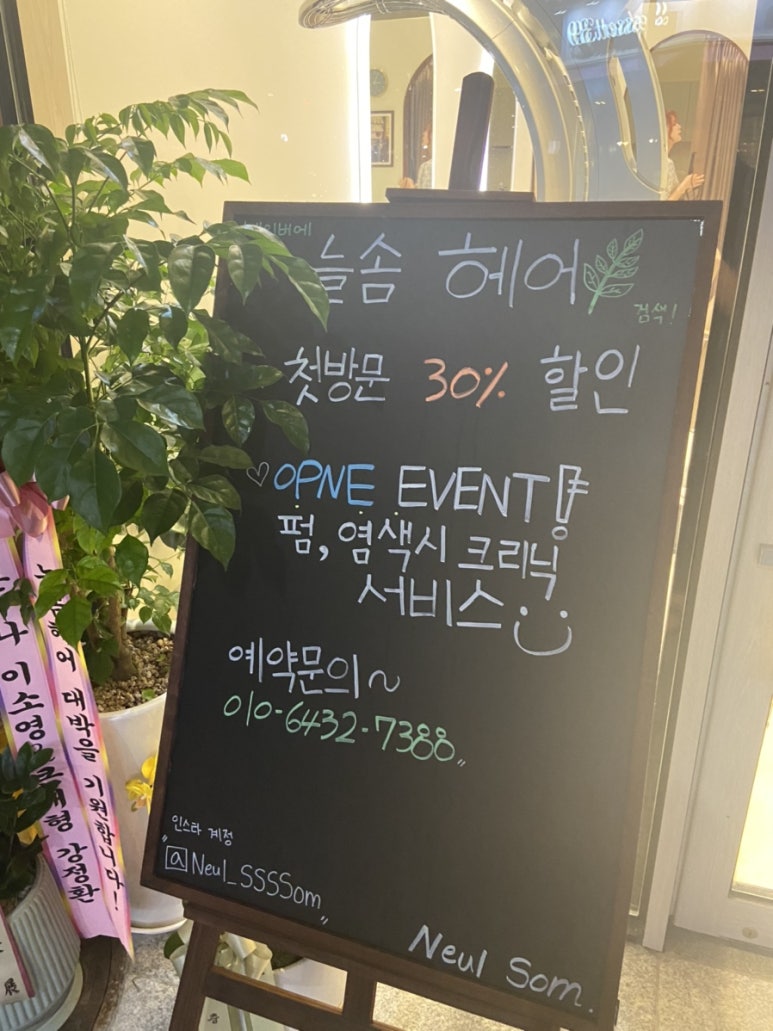 늘솜 헤어
검색!
첫방문 30% 할인
♡OPNE EVENT!
펌, 염색시 크리닉
서비스
예약문의~
010-6432-7388"
인스타 계정
"@Neul_SSSSom"
Neul Som.
대박을 기원합니다!
이소영
강정환
展